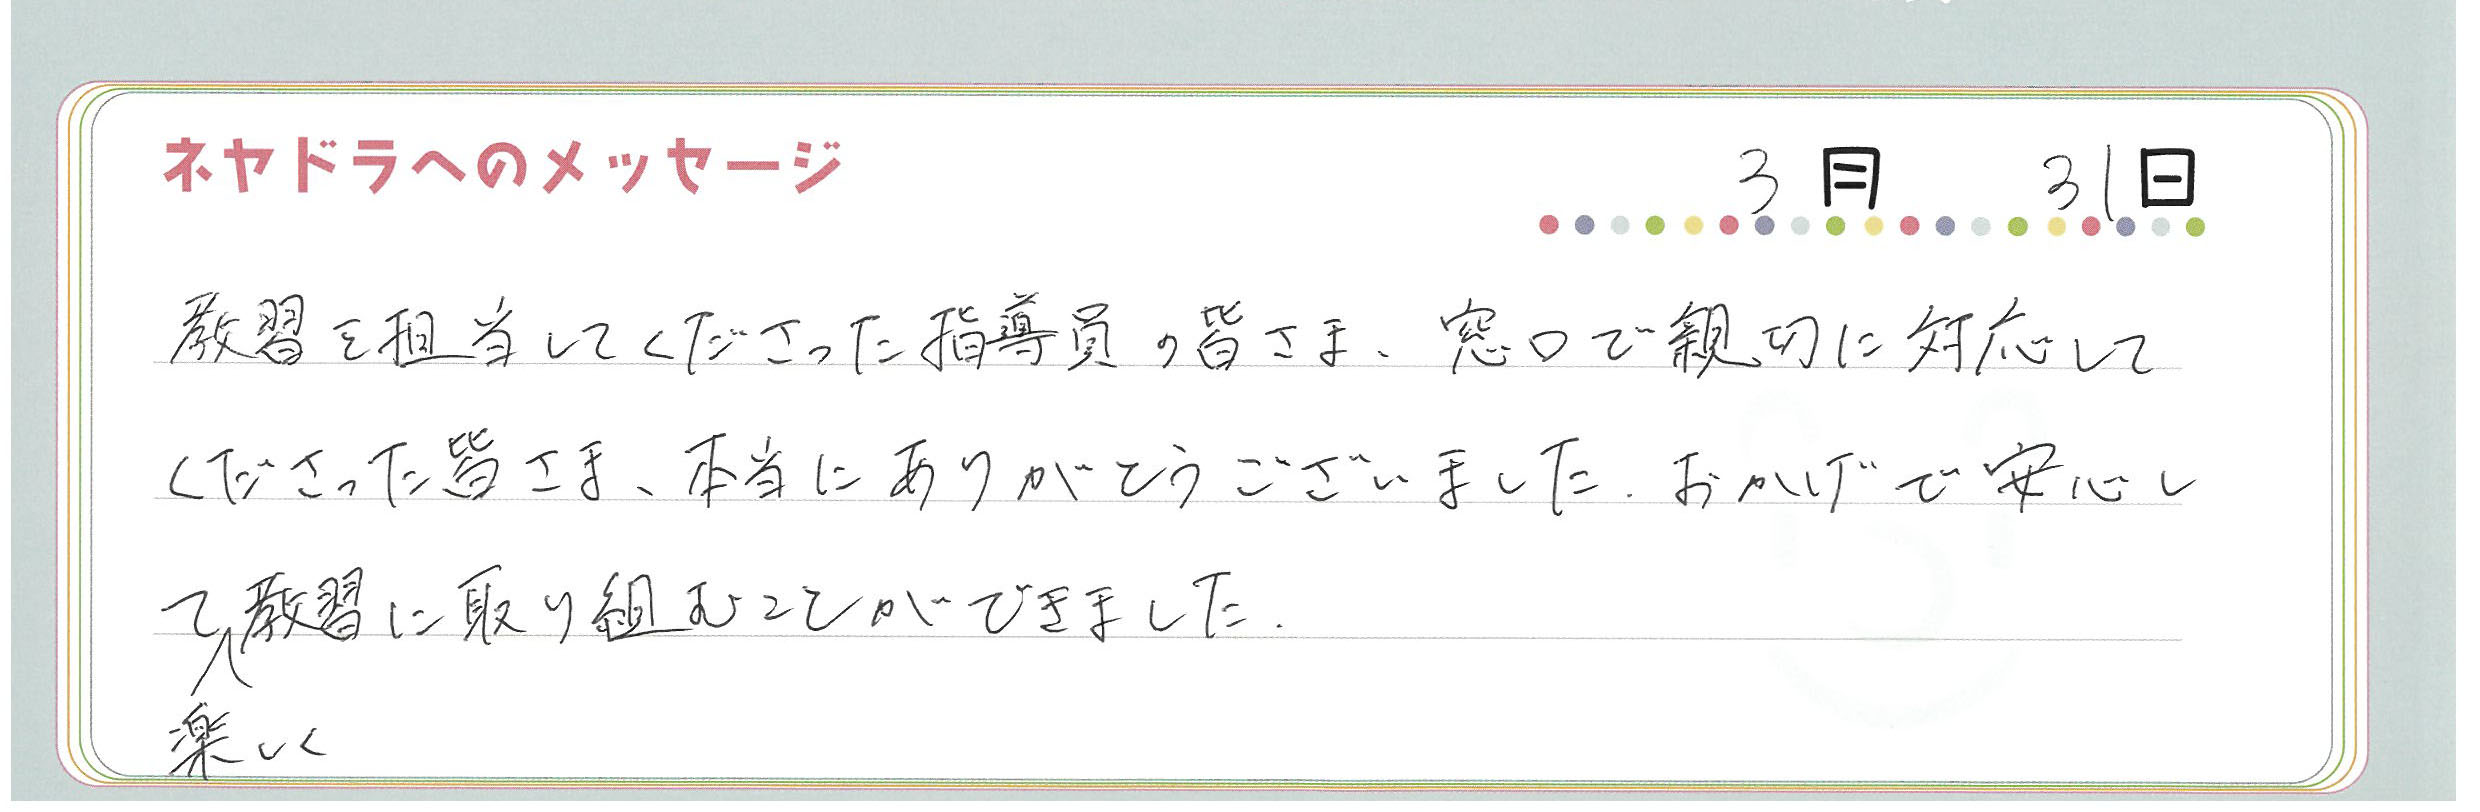 ネヤドラへのメッセージ
3月 31日
教習を担当してくださった指導員の皆さま、窓口で親切に対応して
くださった皆さま、本当にありがとうございました。おかげで安心し
て教習に取り組むことができました。
楽しく